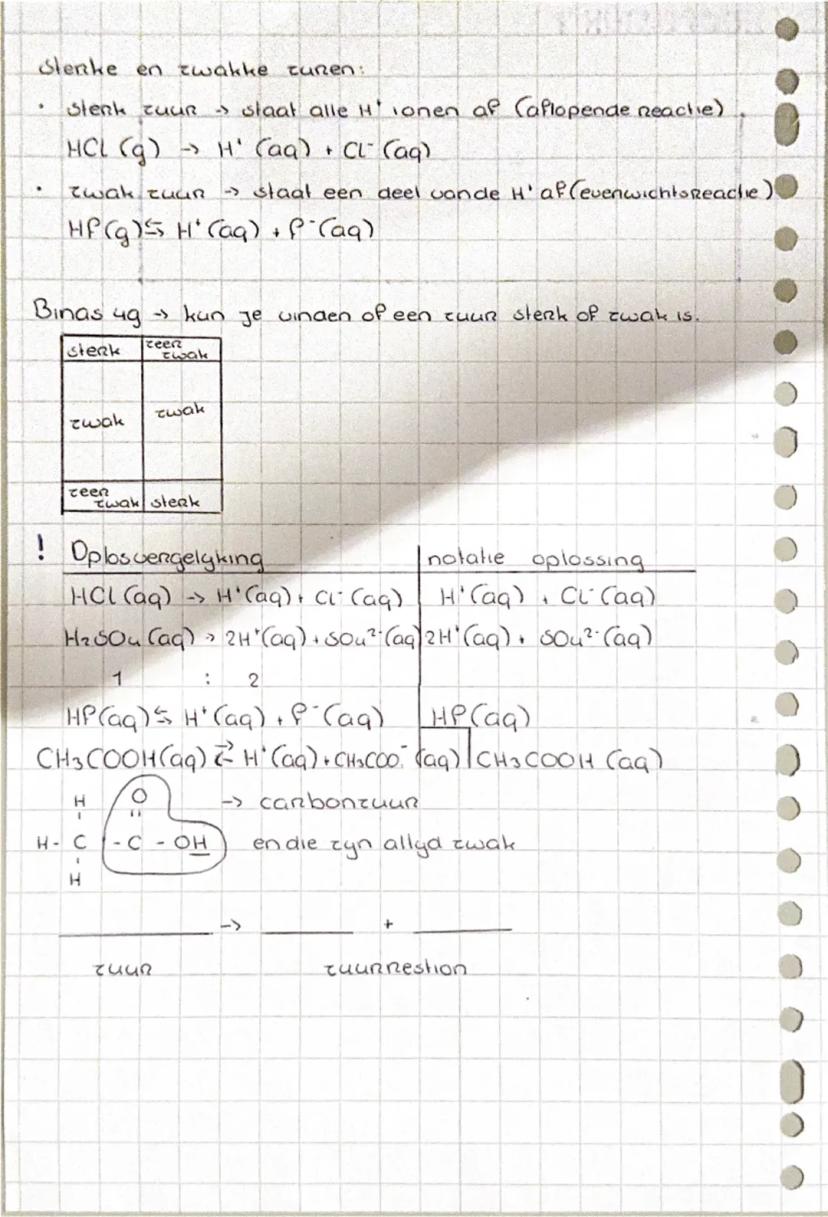 Sterke en zwakke zuren:
· sterk zuur → staat alle H⁺ ionen af (aflopende reactie)
HCl (g) → H⁺ (aq) + Cl⁻ (aq)
· zwak zuur → staat een deel vande H⁺ af (evenwichtsreactie)
HF(g) ⇆ H⁺(aq) + F⁻(aq)
Binas 49 → kun je vinden of een zuur sterk of zwak is.
sterk zeer zwak
zwak zwak
zeer zwak sterk
! Oplosvergelijking notatie oplossing
HCl (aq) → H⁺(aq) + Cl⁻ (aq) H⁺(aq) + Cl⁻ (aq)
H₂SO₄ (aq) → 2H⁺(aq) + SO₄²⁻(aq) 2H⁺(aq) + SO₄²⁻ (aq)
1 : 2
HF(aq) ⇆ H⁺(aq) + F⁻(aq) HF(aq)
CH₃COOH(aq) ⇄ H⁺(aq) + CH₃COO⁻ (aq) CH₃COOH (aq)
H O → carbonzuur
H - C - C - OH en die zijn altijd zwak
H
→ +
zuur zuurrestion